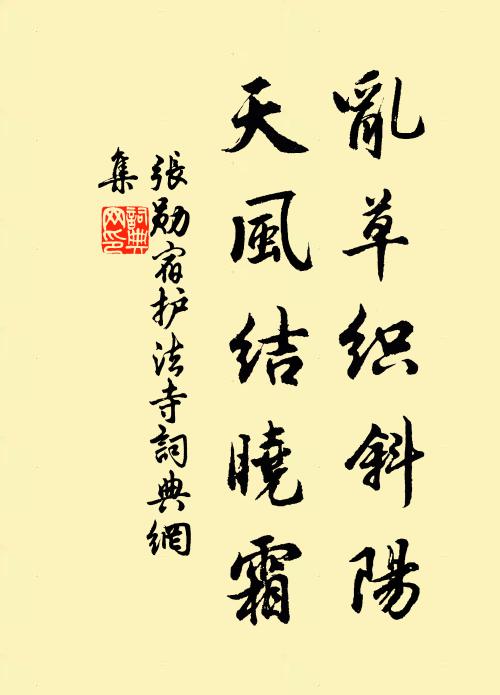 亂草织斜陽
天風结曉霜
張勋宿护法寺詞典網
集
詞典网印